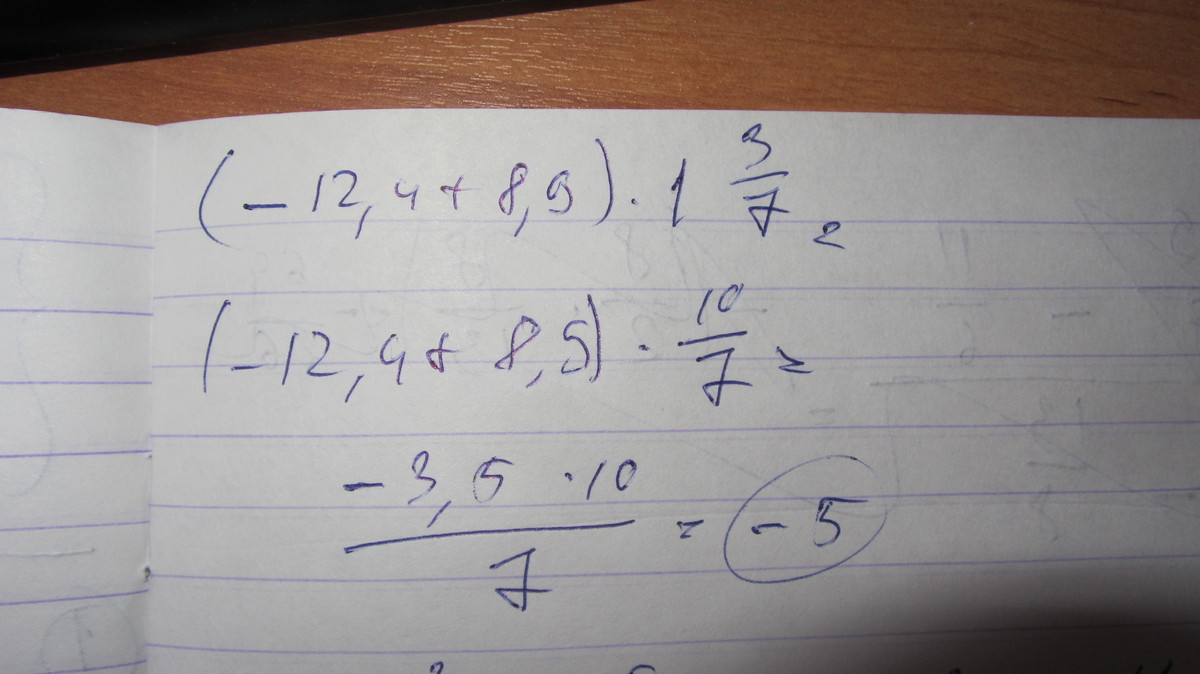 (-12,4 + 8,9) · 1 3/7 =
(-12,4 + 8,9) · 10/7 =
-3,5 · 10 / 7 = -5